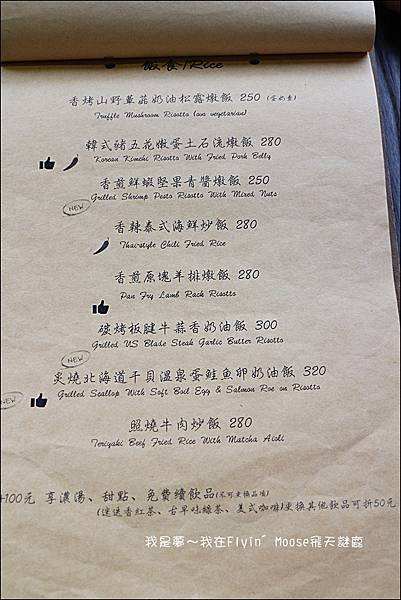 飯食/Rice
香烤山野蕈菇奶油松露燉飯 250 (蛋奶素)
Truffle Mushroom Risotto (ovo vegetarian)
韓式豬五花嫩蛋土石流燉飯 280
Korean Kimchi Risotto With Fried Pork Belly
香煎鮮蝦堅果青醬燉飯 250
NEW
Grilled Shrimp Pesto Risotto With Mixed Nuts
香辣泰式海鮮炒飯 280
Thai-style Chili Fried Rice
香煎原塊羊排燉飯 280
Pan Fry Lamb Rack Risotto
碳烤板腱牛蒜香奶油飯 300
Grilled US Blade Steak Garlic Butter Risotto
NEW
炙燒北海道干貝溫泉蛋鮭魚卵奶油飯 320
Grilled Scallop With Soft Boil Egg & Salmon Roe on Risotto
NEW
照燒牛肉炒飯 280
Teriyaki Beef Fried Rice With Matcha Aioli
+100元 享濃湯、甜點、免費續飲品(不可更換品項)
(迷迭香紅茶、古早味綠茶、美式咖啡)更換其他飲品可折50元
我是夢～我在Flyin' Moose飛天謎鹿